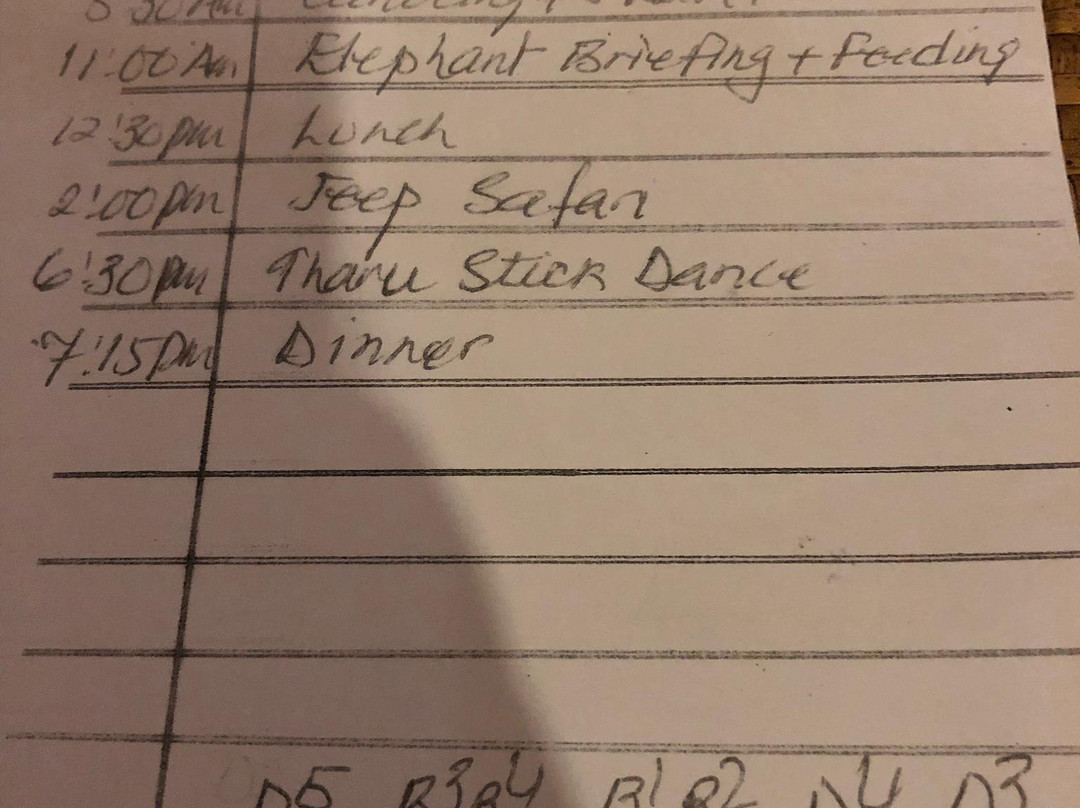 11:00 Am Elephant Briefing + Feeding
12:30 pm Lunch
2:00 pm Jeep Safari
6:30 pm Tharu Stick Dance
7:15 pm Dinner